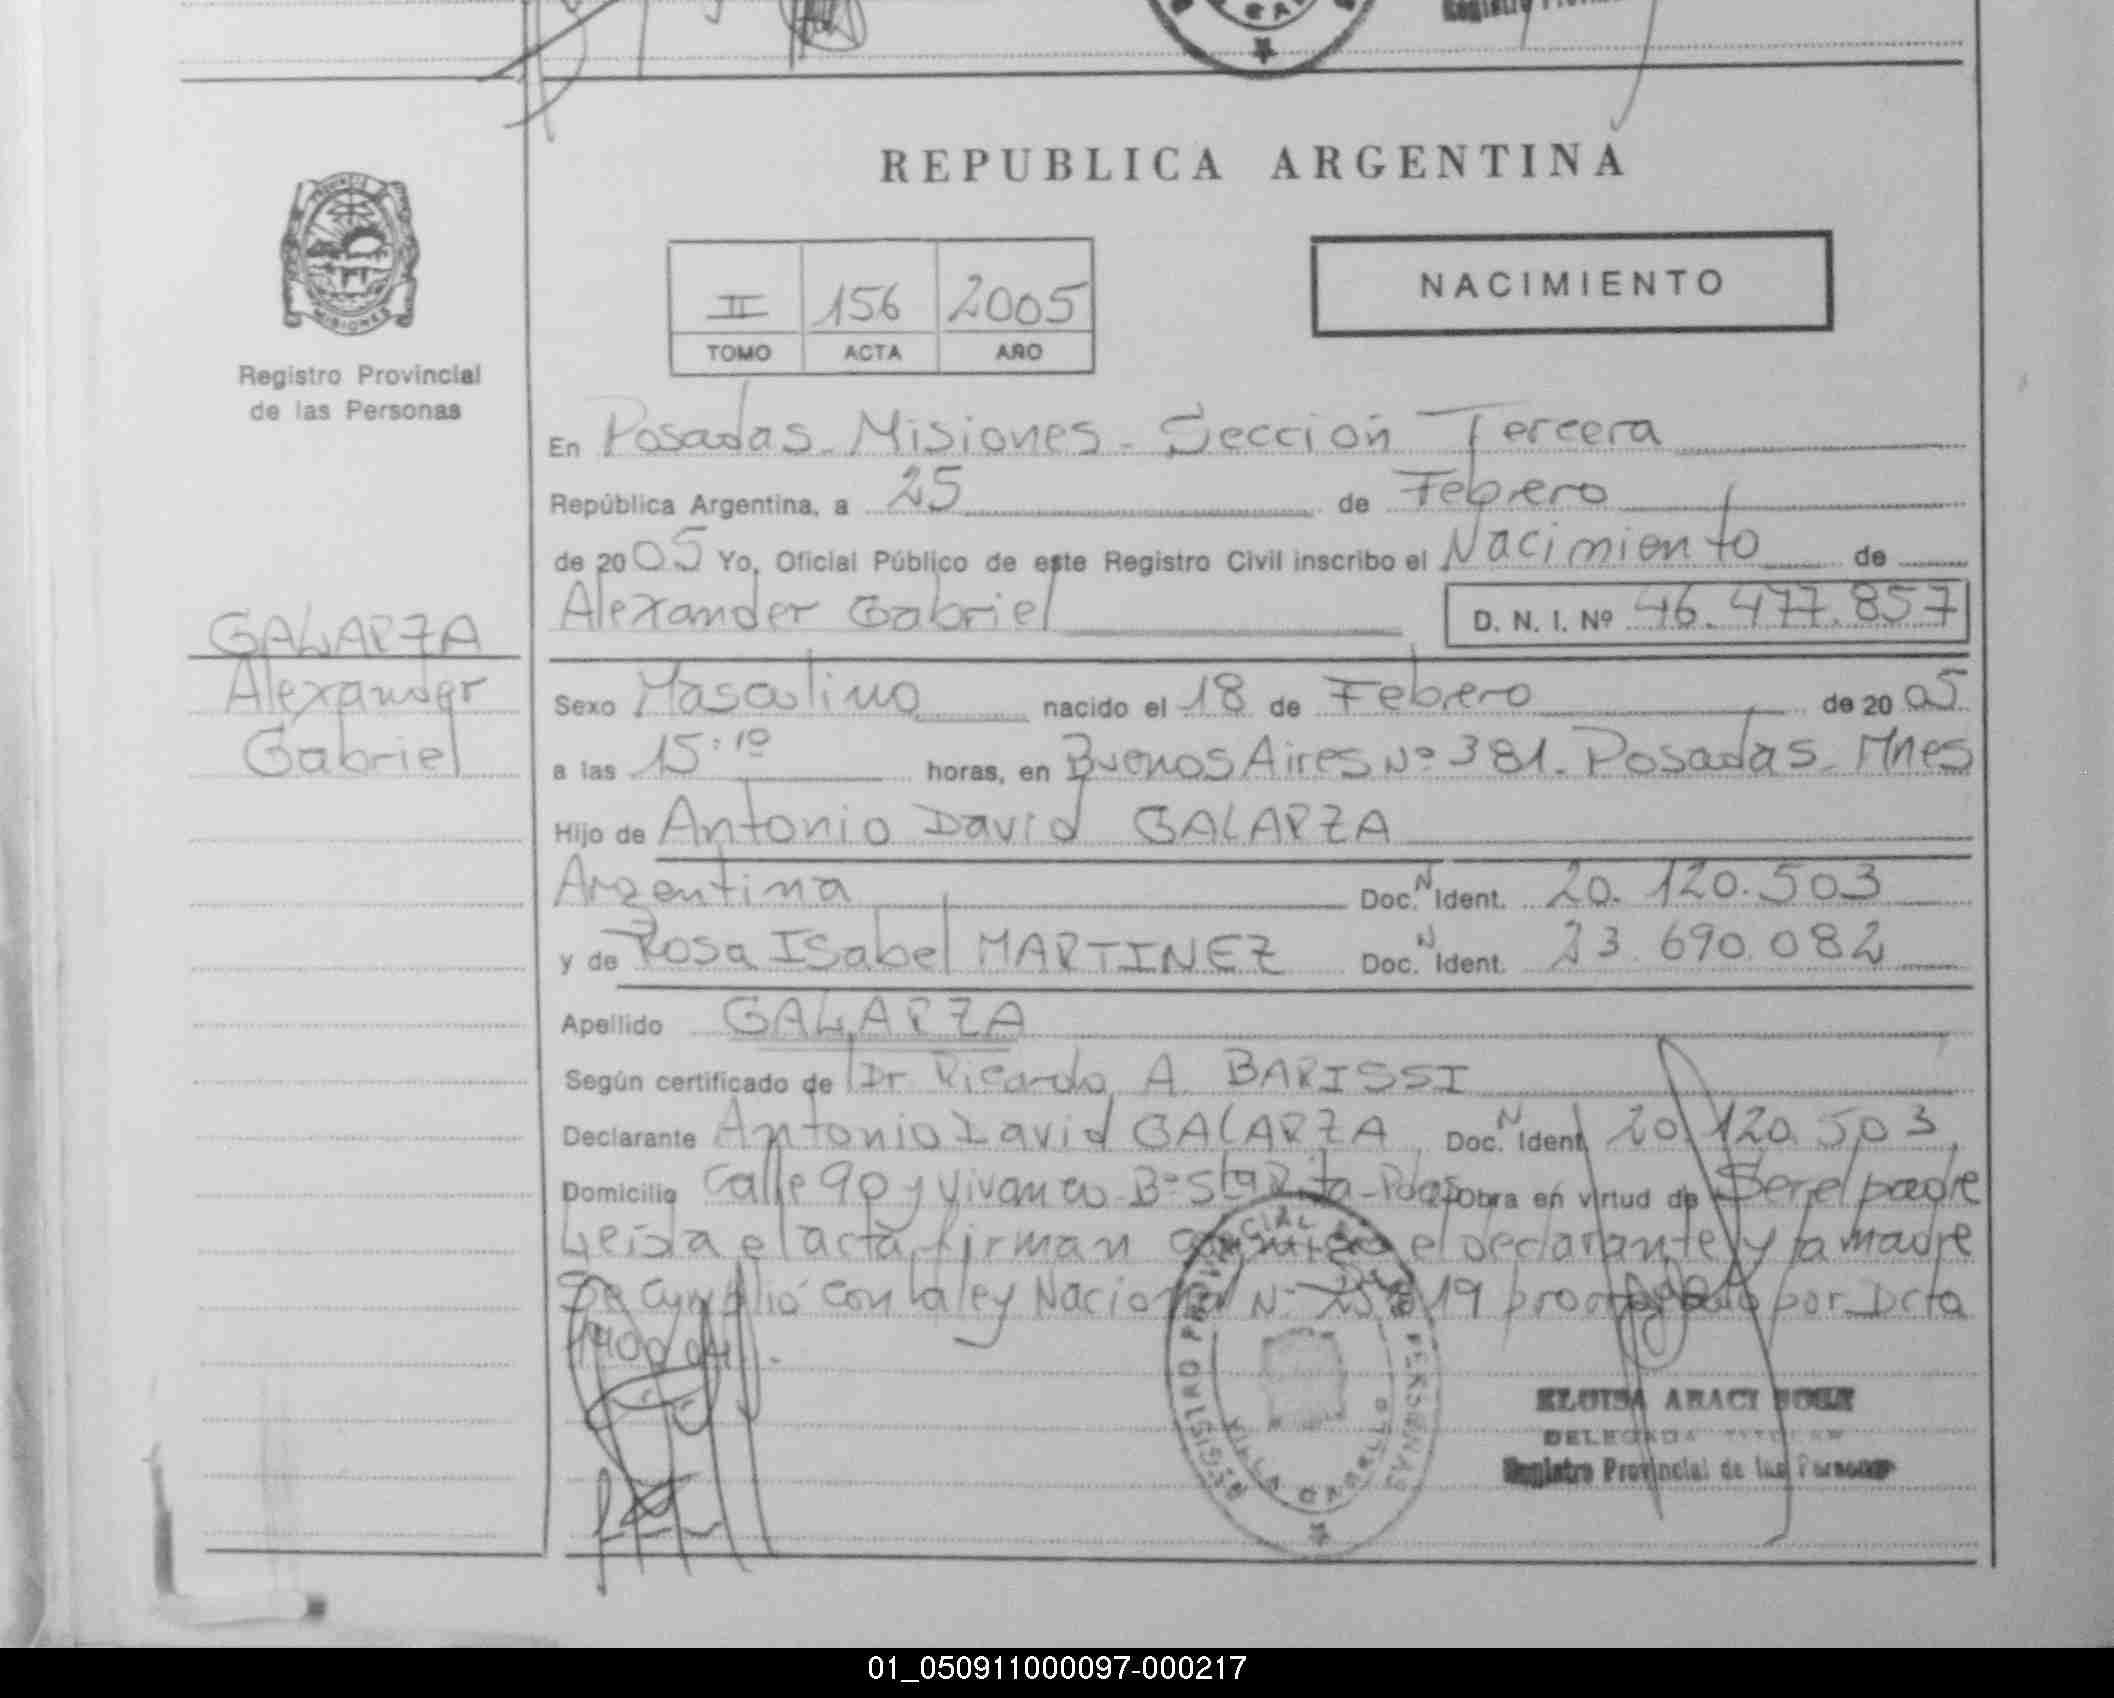 REPUBLICA ARGENTINA
MISIONES
Registro Provincial
de las Personas
II 156 2005
TOMO ACTA AÑO
NACIMIENTO
En Posadas - Misiones - Sección Tercera
República Argentina, a 25 de Febrero
de 2005 Yo, Oficial Público de este Registro Civil inscribo el Nacimiento de
Alexander Gabriel D. N. I. Nº 46.477.857
GALARZA
Alexander
Gabriel
Sexo Masculino nacido el 18 de Febrero de 2005
a las 15:10 horas, en Buenos Aires Nº 381. Posadas - Mnes
Hijo de Antonio David GALARZA
Argentina Doc. N Ident. 20.120.503
y de Rosa Isabel MARTINEZ Doc. N Ident. 23.690.082
Apellido GALARZA
Según certificado de Dr Ricardo A. BARISSI
Declarante Antonio David GALARZA Doc. N Ident. 20.120.503
Domicilio Calle 90 y Vivanco Bº Sta Rita - Pdas Obra en virtud de Ser el padre
Leida el acta, firman el declarante y la madre
Se cumplió con la ley Nacional Nº por Dcto
REGISTRO PROVINCIAL DE LAS PERSONAS
VILLA CABELLO
ELOISA ARACI
DELEGADA TITULAR
Registro Provincial de las Personas
01_050911000097-000217